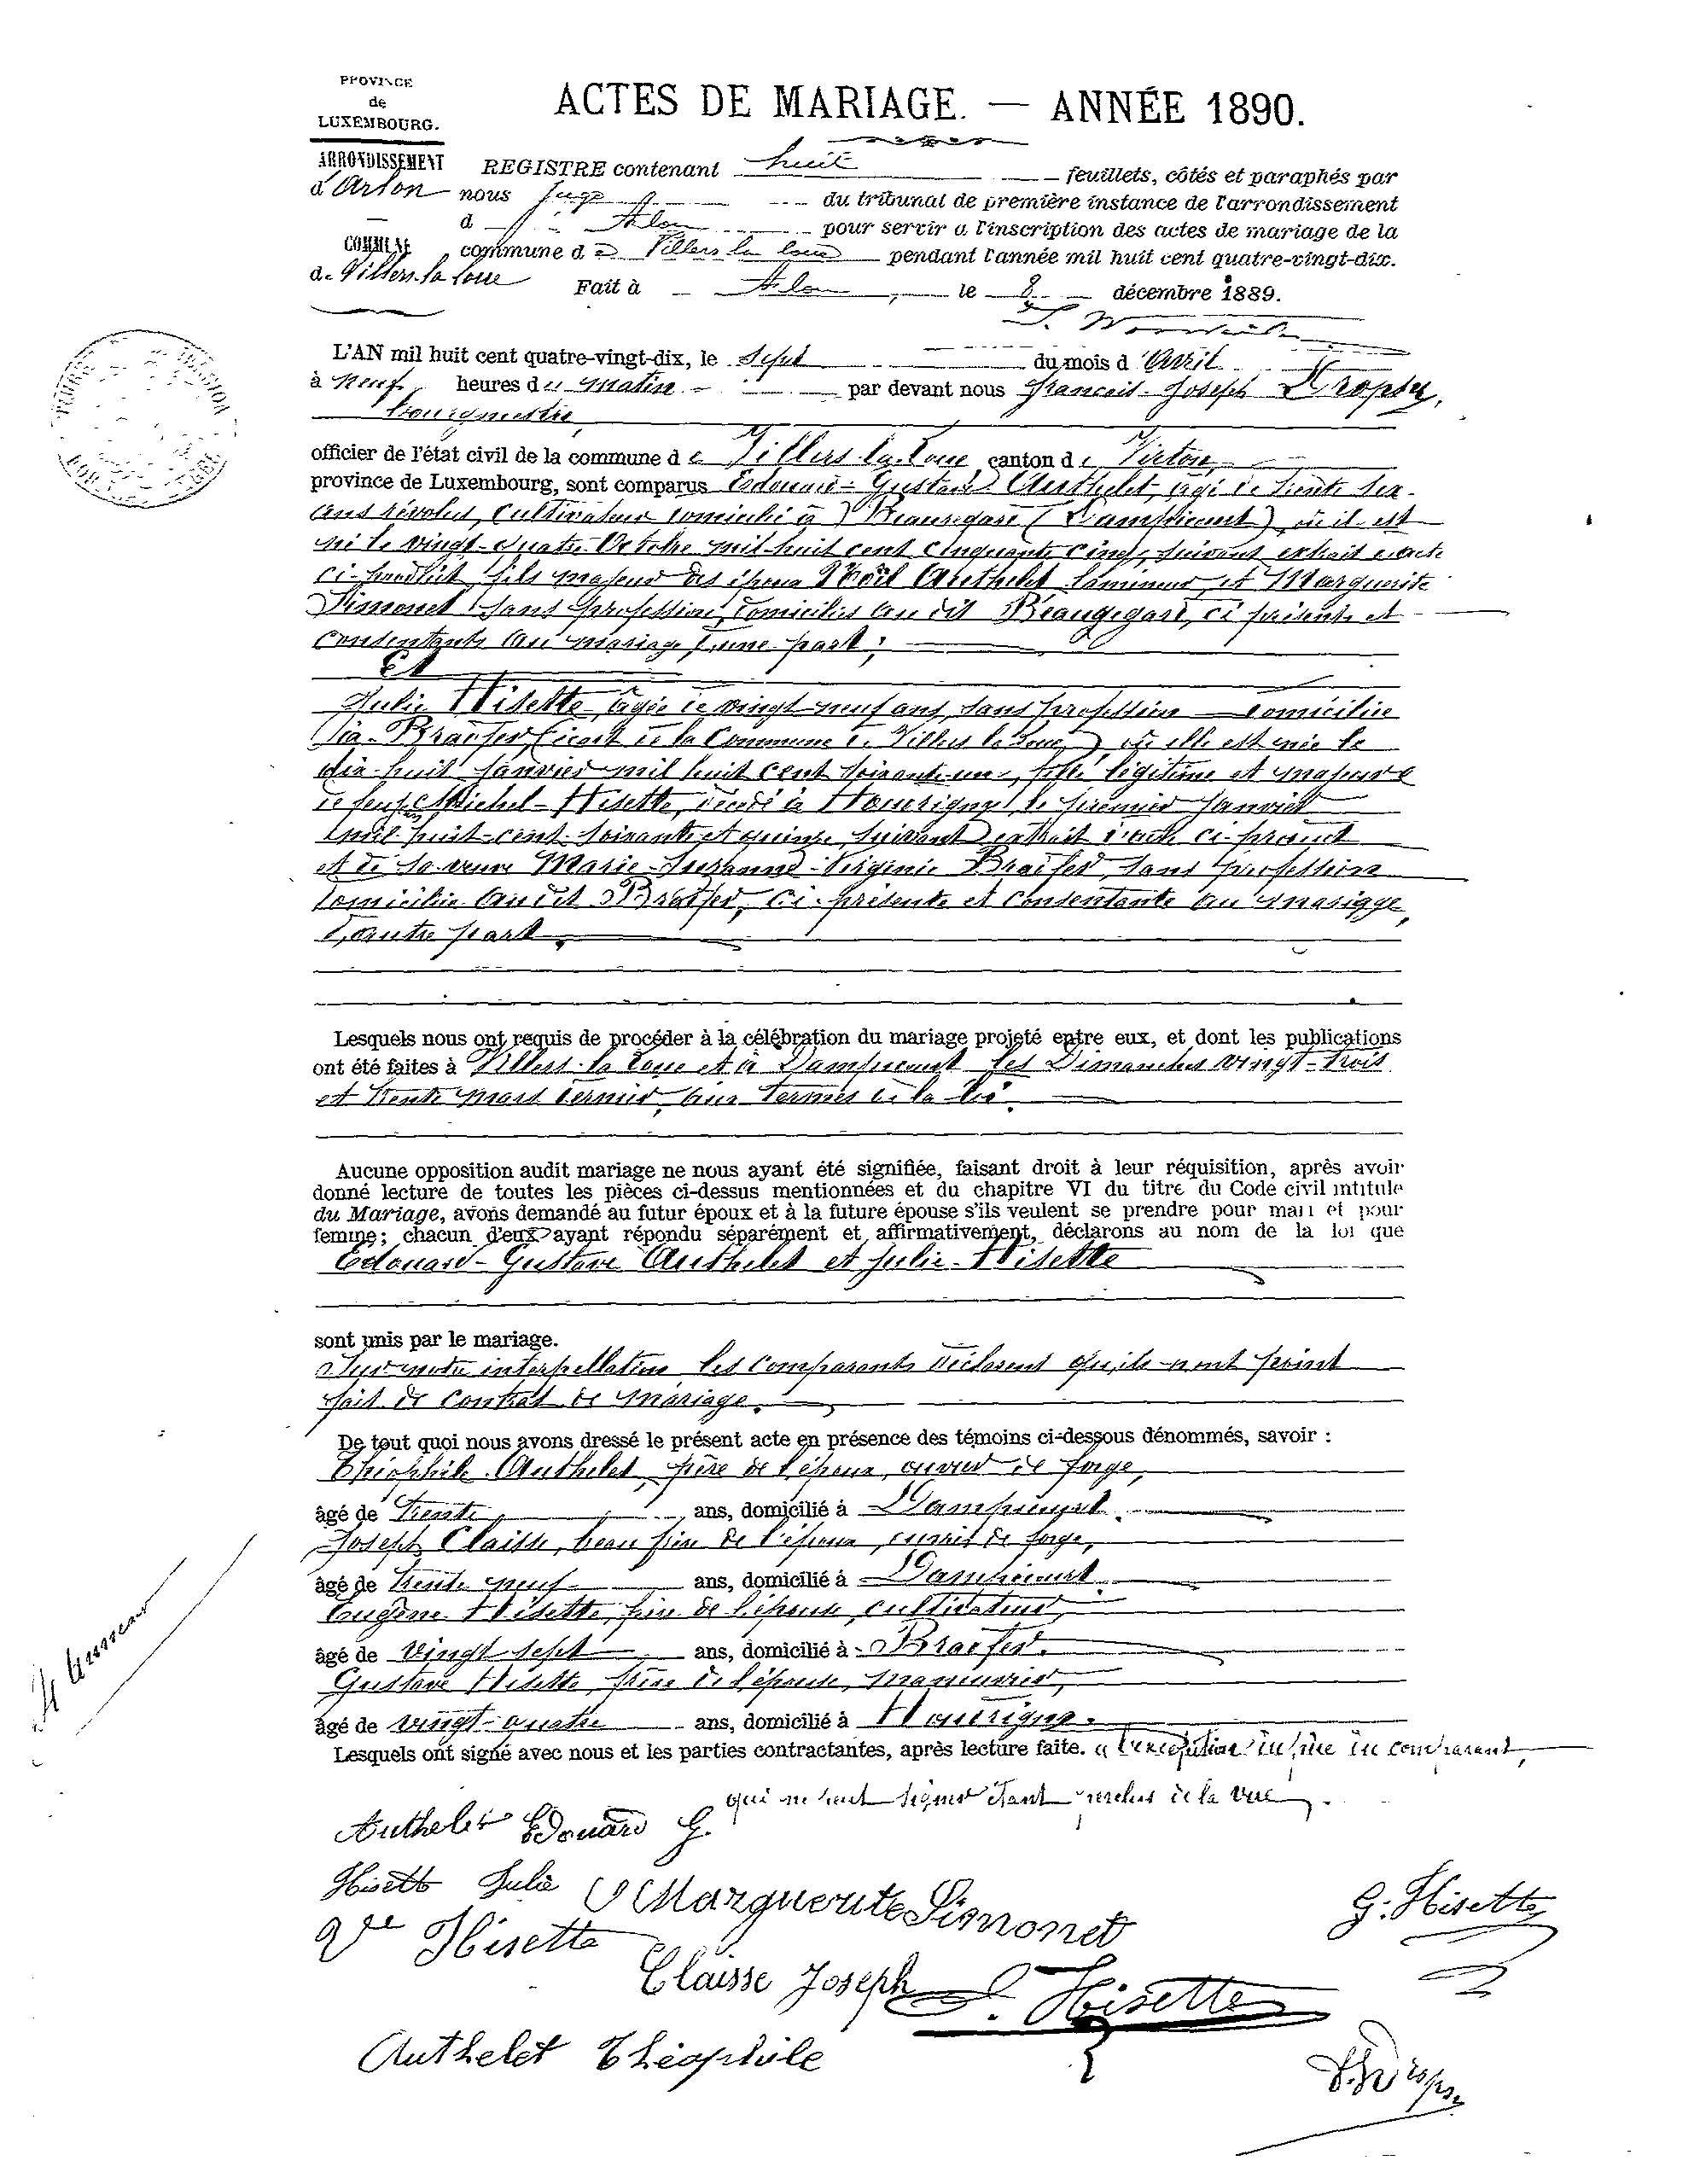 PROVINCE
de
LUXEMBOURG.
ACTES DE MARIAGE. — ANNÉE 1890.
ARRONDISSEMENT
d'Arlon
COMMUNE
de Villers-la-Loue
REGISTRE contenant huit feuillets, côtés et paraphés par
nous Juge du tribunal de première instance de l'arrondissement
d' Arlon pour servir a l'inscription des actes de mariage de la
commune de Villers la Loue pendant l'année mil huit cent quatre-vingt-dix.
Fait à Arlon, le 8 décembre 1889.
L'AN mil huit cent quatre-vingt-dix, le sept du mois d'Avril
à neuf heures du matin par devant nous François-Joseph Dropsy,
bourgmestre,
officier de l'état civil de la commune de Villers-la-Loue, canton de Virton,
province de Luxembourg, sont comparus Edouard-Gustave Authelet, agé de trente six
ans révolus, cultivateur domicilié à Beauregard (Dampicourt) où il est
né le vingt-quatre Octobre mil huit cent cinquante cinq, suivant extrait d'acte
ci-produit fils majeur des époux Noël Authelet lamineur, et Marguerite
Simonet sans profession, domiciliés au dit Beauregard, ci présents et
consentants au mariage, d'une part;
Et
Julie Hisette, âgée de vingt-neuf ans, sans profession domiciliée
à Braifer (écart de la Commune de Villers la Loue) où elle est née le
dix-huit Janvier mil huit cent soixante-un, fille légitime et majeure
de feu Michel-Hisette, décédé à Houdrigny le premier Janvier
mil-huit-cent-soixante et quinze, suivant extrait d'acte ci-produit
et de sa veuve Marie-Suzanne-Virginie Braifer, sans profession
domiciliée au dit Braifer, ci-présente et consentante au mariage,
d'autre part.
Lesquels nous ont requis de procéder à la célébration du mariage projeté entre eux, et dont les publications
ont été faites à Villers-la Loue et à Dampicourt les Dimanches vingt-trois
et trente mars dernier, aux termes de la loi.
Aucune opposition audit mariage ne nous ayant été signifiée, faisant droit à leur réquisition, après avoir
donné lecture de toutes les pièces ci-dessus mentionnées et du chapitre VI du titre du Code civil intitule
du Mariage, avons demandé au futur époux et à la future épouse s'ils veulent se prendre pour mari et pour
femme; chacun d'eux ayant répondu séparément et affirmativement, déclarons au nom de la loi que
Edouard-Gustave Authelet et Julie-Hisette
sont unis par le mariage.
Sur notre interpellation les comparants déclarent qu'ils n'ont point
fait de contrat de mariage.
De tout quoi nous avons dressé le présent acte en présence des témoins ci-dessous dénommés, savoir :
Théophile Authelet, frère de l'époux, ouvrier de forge,
âgé de Trente ans, domicilié à Dampicourt.
Joseph Claisse, beau frère de l'époux, ouvrier de forge,
âgé de Trente neuf ans, domicilié à Dampicourt.
Eugène Hisette, frère de l'épouse, cultivateur,
âgé de vingt sept ans, domicilié à Braifer.
Gustave Hisette, frère de l'épouse, manœuvrier,
âgé de vingt-quatre ans, domicilié à Houdrigny.
Lesquels ont signé avec nous et les parties contractantes, après lecture faite. à l'exception du père du comparant,
qui ne peut signer étant perclus de la vue.
Authelet Edouard G.
Hisette Julie Marguerite Simonet G. Hisette
Vve Hisette
Claisse Joseph E. Hisette
Authelet Théophile